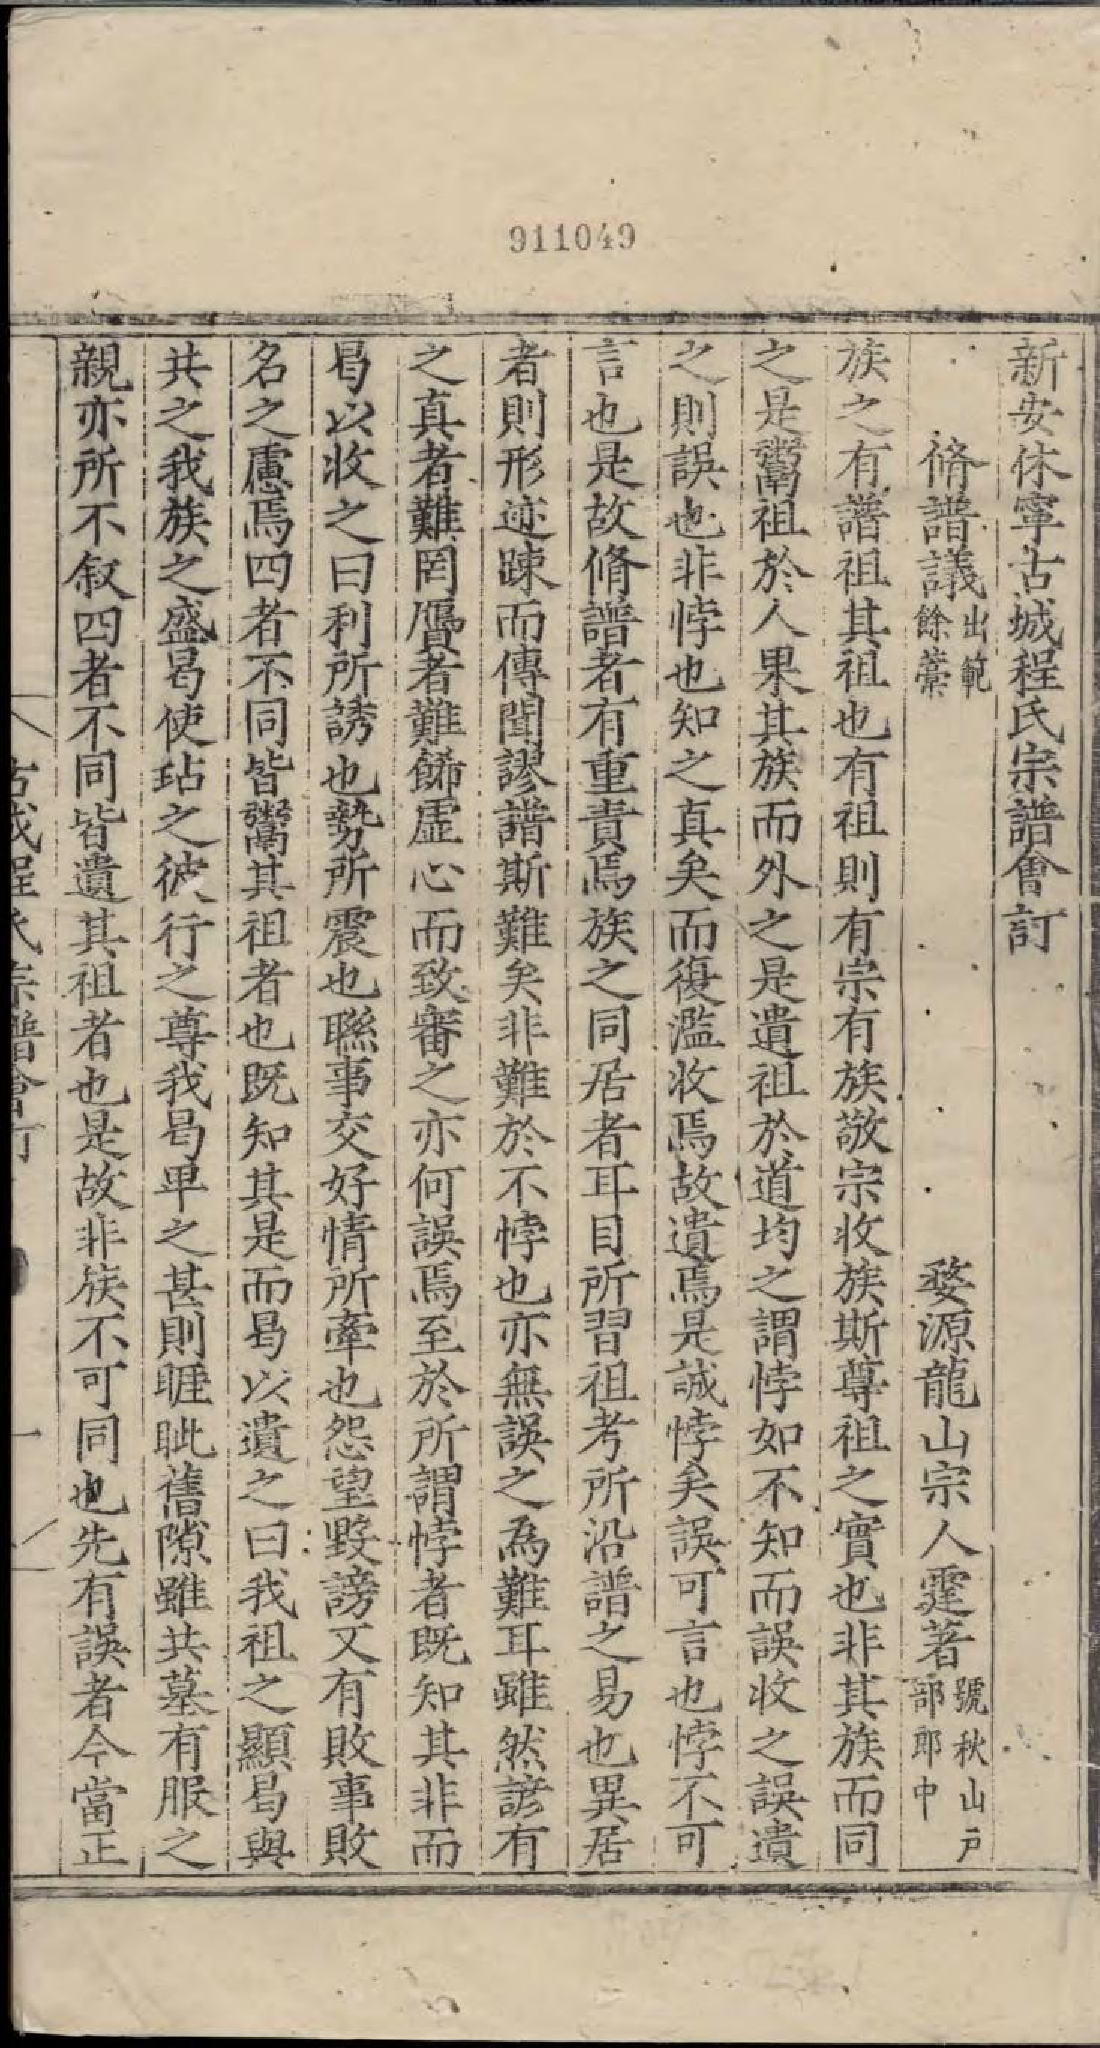 911049
新安休寧古城程氏宗譜會訂
脩譜議出範餘藁 婺源龍山宗人霆著號秋山戸部郎中
族之有譜祖其祖也有祖則有宗有族敬宗收族斯尊祖之實也非其族而同
之是鬻祖於人果其族而外之是遺祖於道均之謂悖如不知而誤收之誤遺
之則誤也非悖也知之真矣而復濫收焉故遺焉是誠悖矣誤可言也悖不可
言也是故脩譜者有重責焉族之同居者耳目所習祖考所沿譜之易也異居
者則形迹踈而傳聞謬譜斯難矣非難於不悖也亦無誤之為難耳雖然諺有
之真者難罔贋者難餙虛心而致審之亦何誤焉至於所謂悖者既知其非而
曷以收之曰利所誘也勢所震也聮事交好情所牽也怨望毀謗又有敗事敗
名之慮焉四者不同皆鬻其祖者也既知其是而曷以遺之曰我祖之顯曷與
共之我族之盛曷使玷之彼行之尊我曷卑之甚則睚眦舊隙雖共墓有服之
親亦所不敘四者不同皆遺其祖者也是故非族不可同也先有誤者今當正
古城程氏宗譜會訂 一